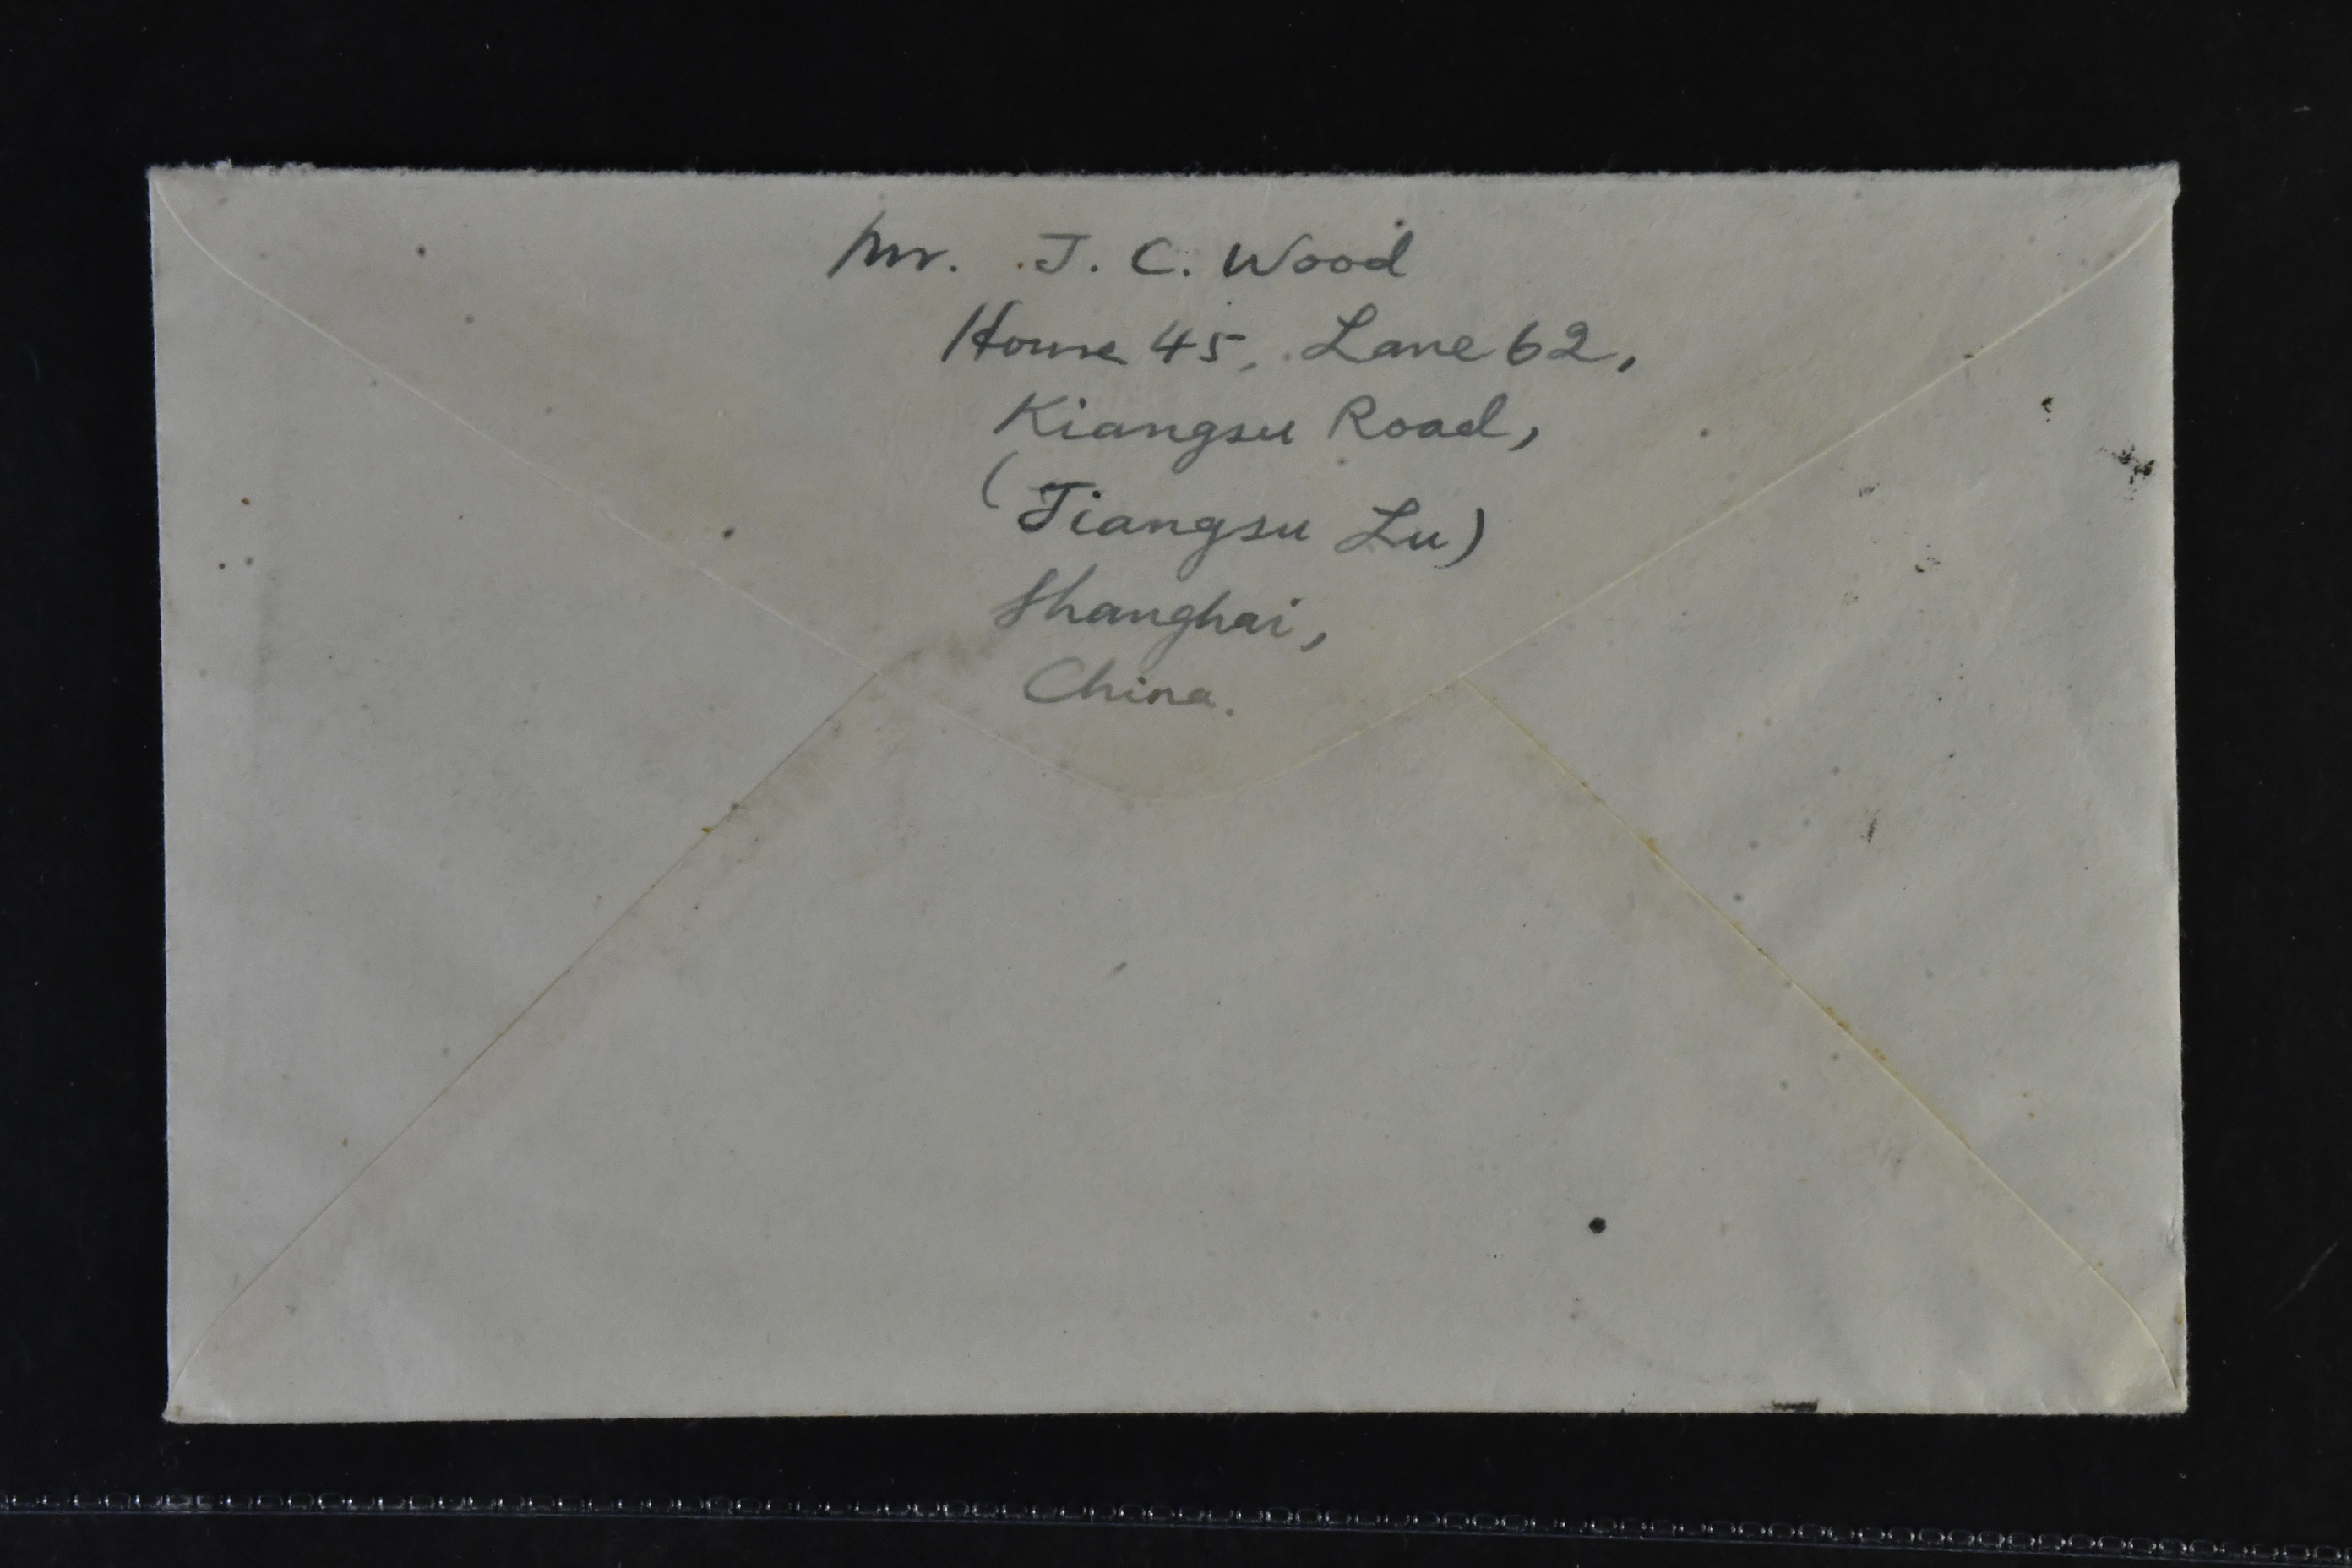 Mr. J. C. Wood
House 45, Lane 62,
Kiangsu Road,
(Jiangsu Lu)
Shanghai,
China.